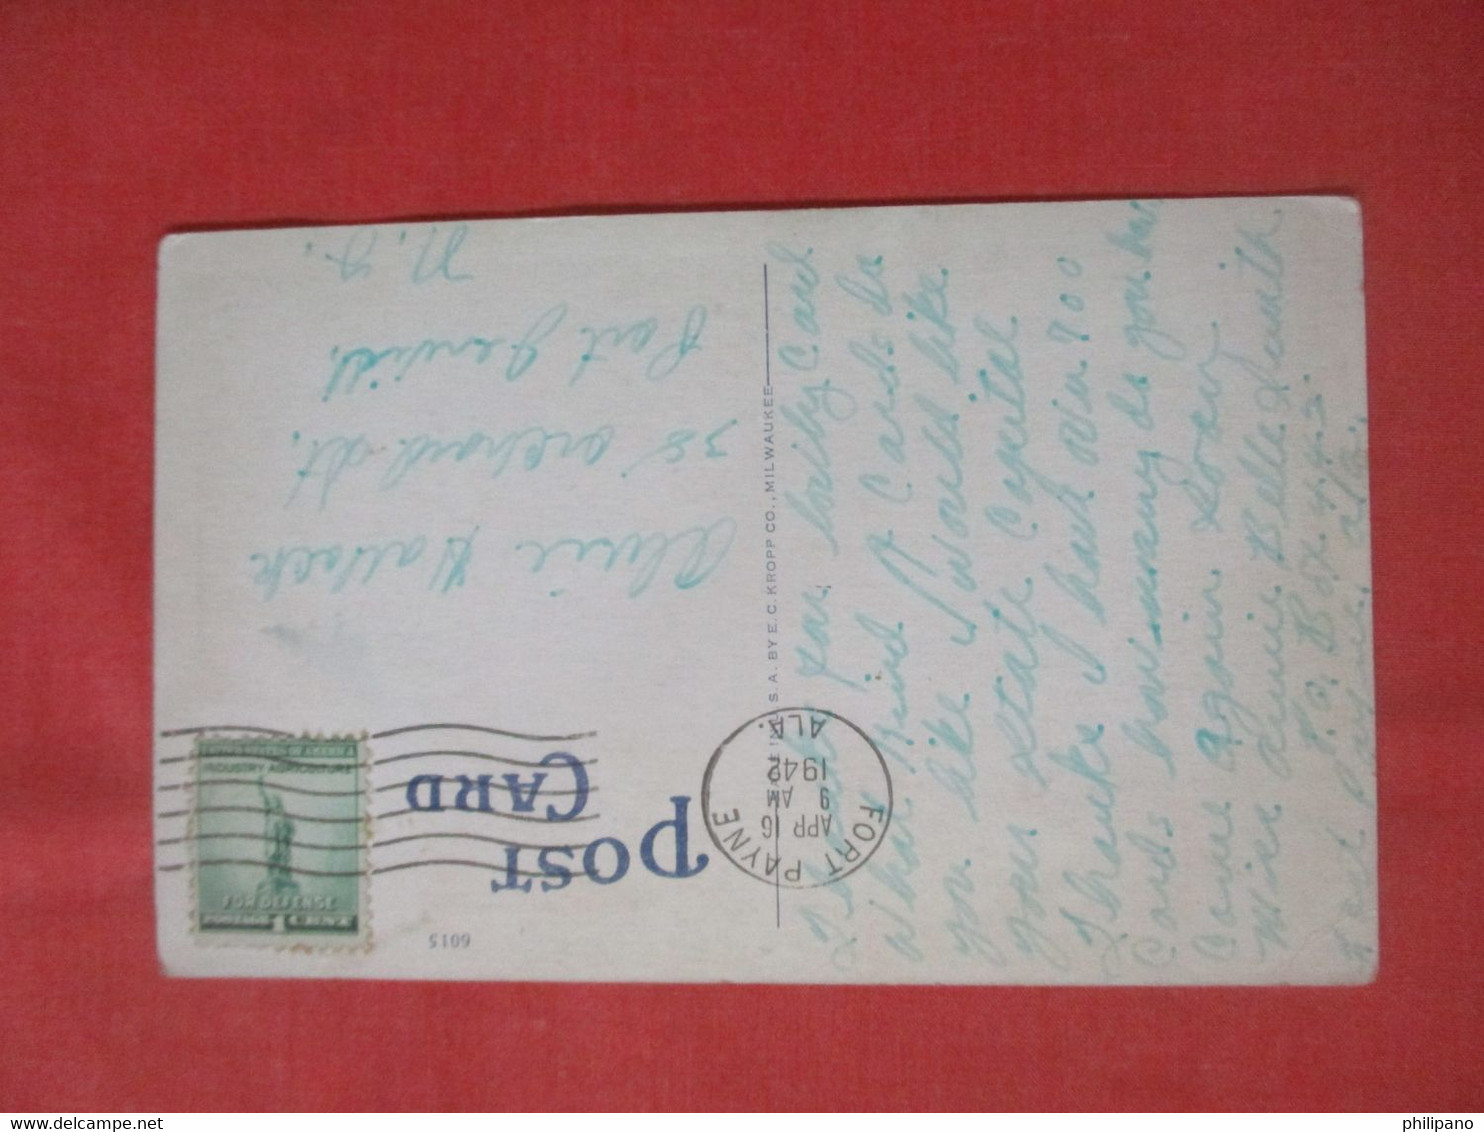 POST
CARD
6015
UNITED STATES OF AMERICA
INDUSTRY AGRICULTURE
FOR DEFENSE
POSTAGE 1 CENT
FORT PAYNE
APR 16
9 AM
1942
ALA.
Hallock
38 Orchard St.
Port Jervis,
N.Y.
BY E. C. KROPP CO., MILWAUKEE
Thanks for lovely Card
What Kind of Cards do
you like I would like
your state Capital.
Thanks I have over 900
Cards how many do you have
Come again soon
Miss Annie Belle Smith
P.O. Box 442.
Fort Payne, Ala.
philipano